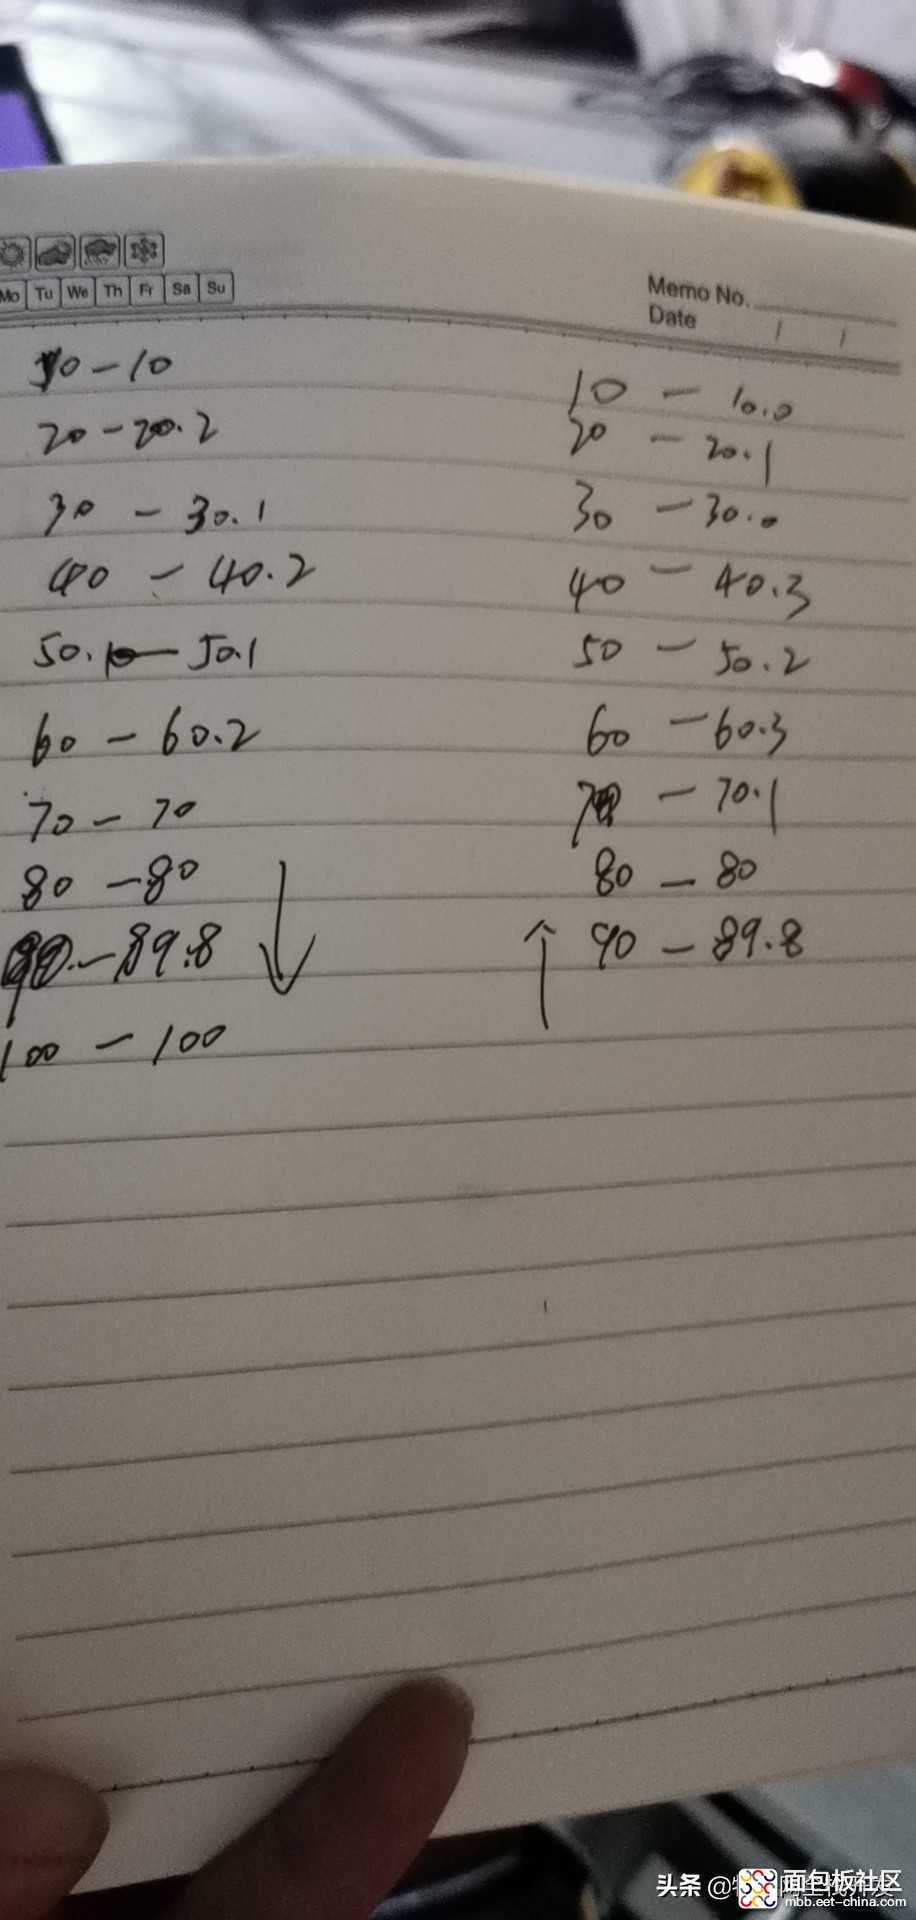 Mo Tu We Th Fr Sa Su
Memo No.
Date / /
10 - 10
20 - 20.2
30 - 30.1
40 - 40.2
50. - 50.1
60 - 60.2
70 - 70
80 - 80
90 - 89.8
100 - 100
10 - 10.0
20 - 20.1
30 - 30.0
40 - 40.3
50 - 50.2
60 - 60.3
70 - 70.1
80 - 80
90 - 89.8
头条 @
面包板社区
mbb.eet-china.com